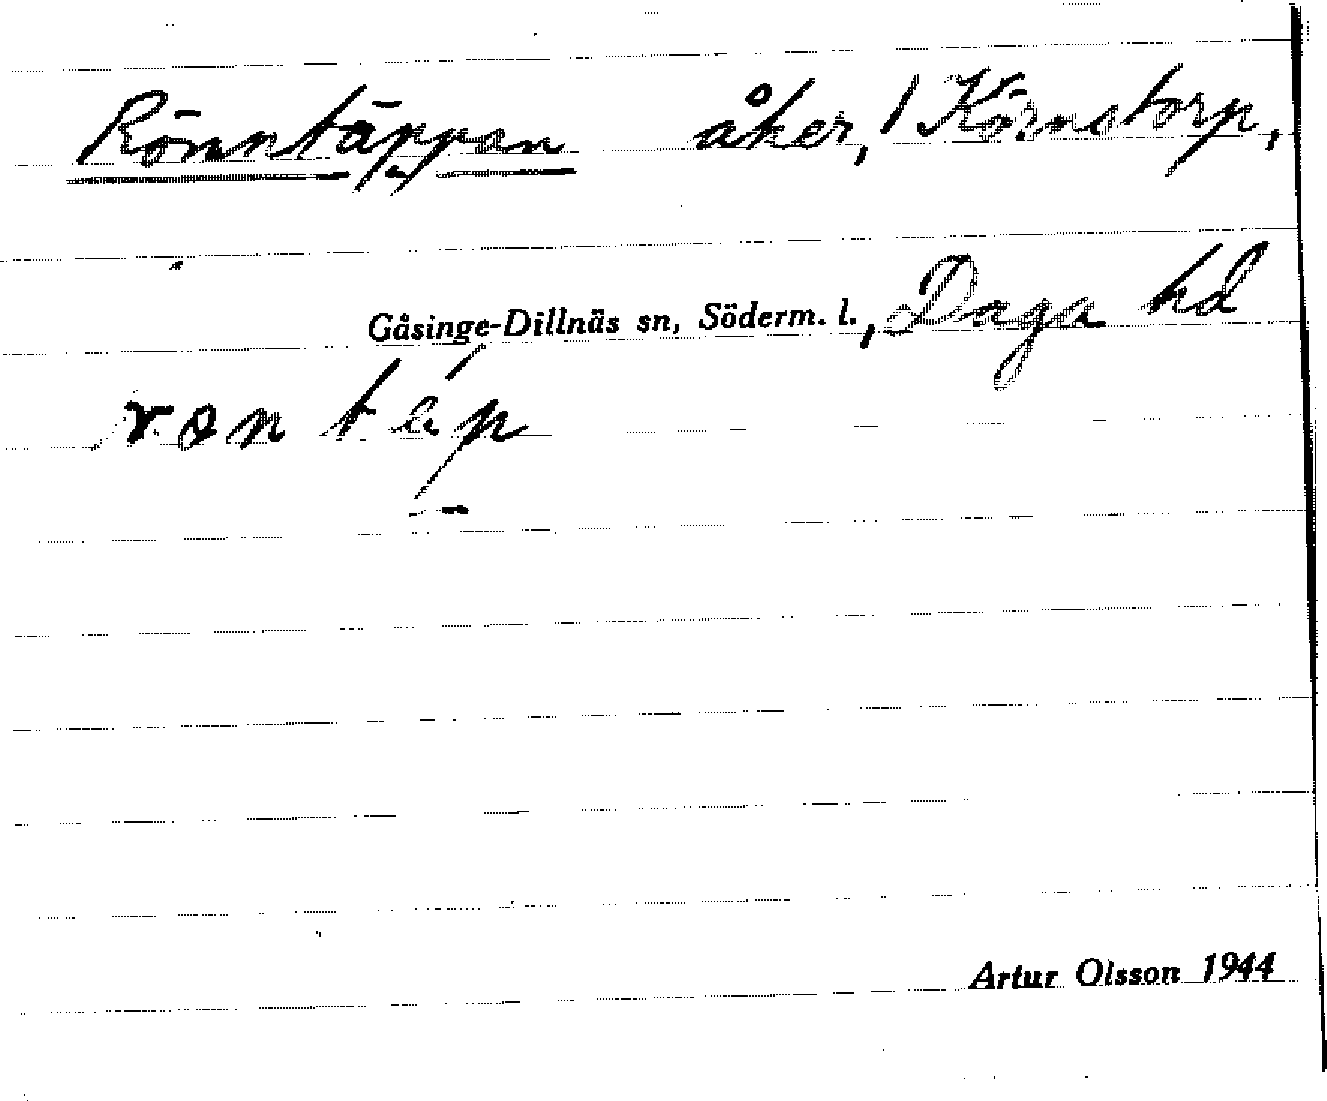 Rönntäppan åker, 1 Körnstorp,
Gåsinge-Dillnäs sn, Söderm. l., Daga hd
Artur Olsson 1944